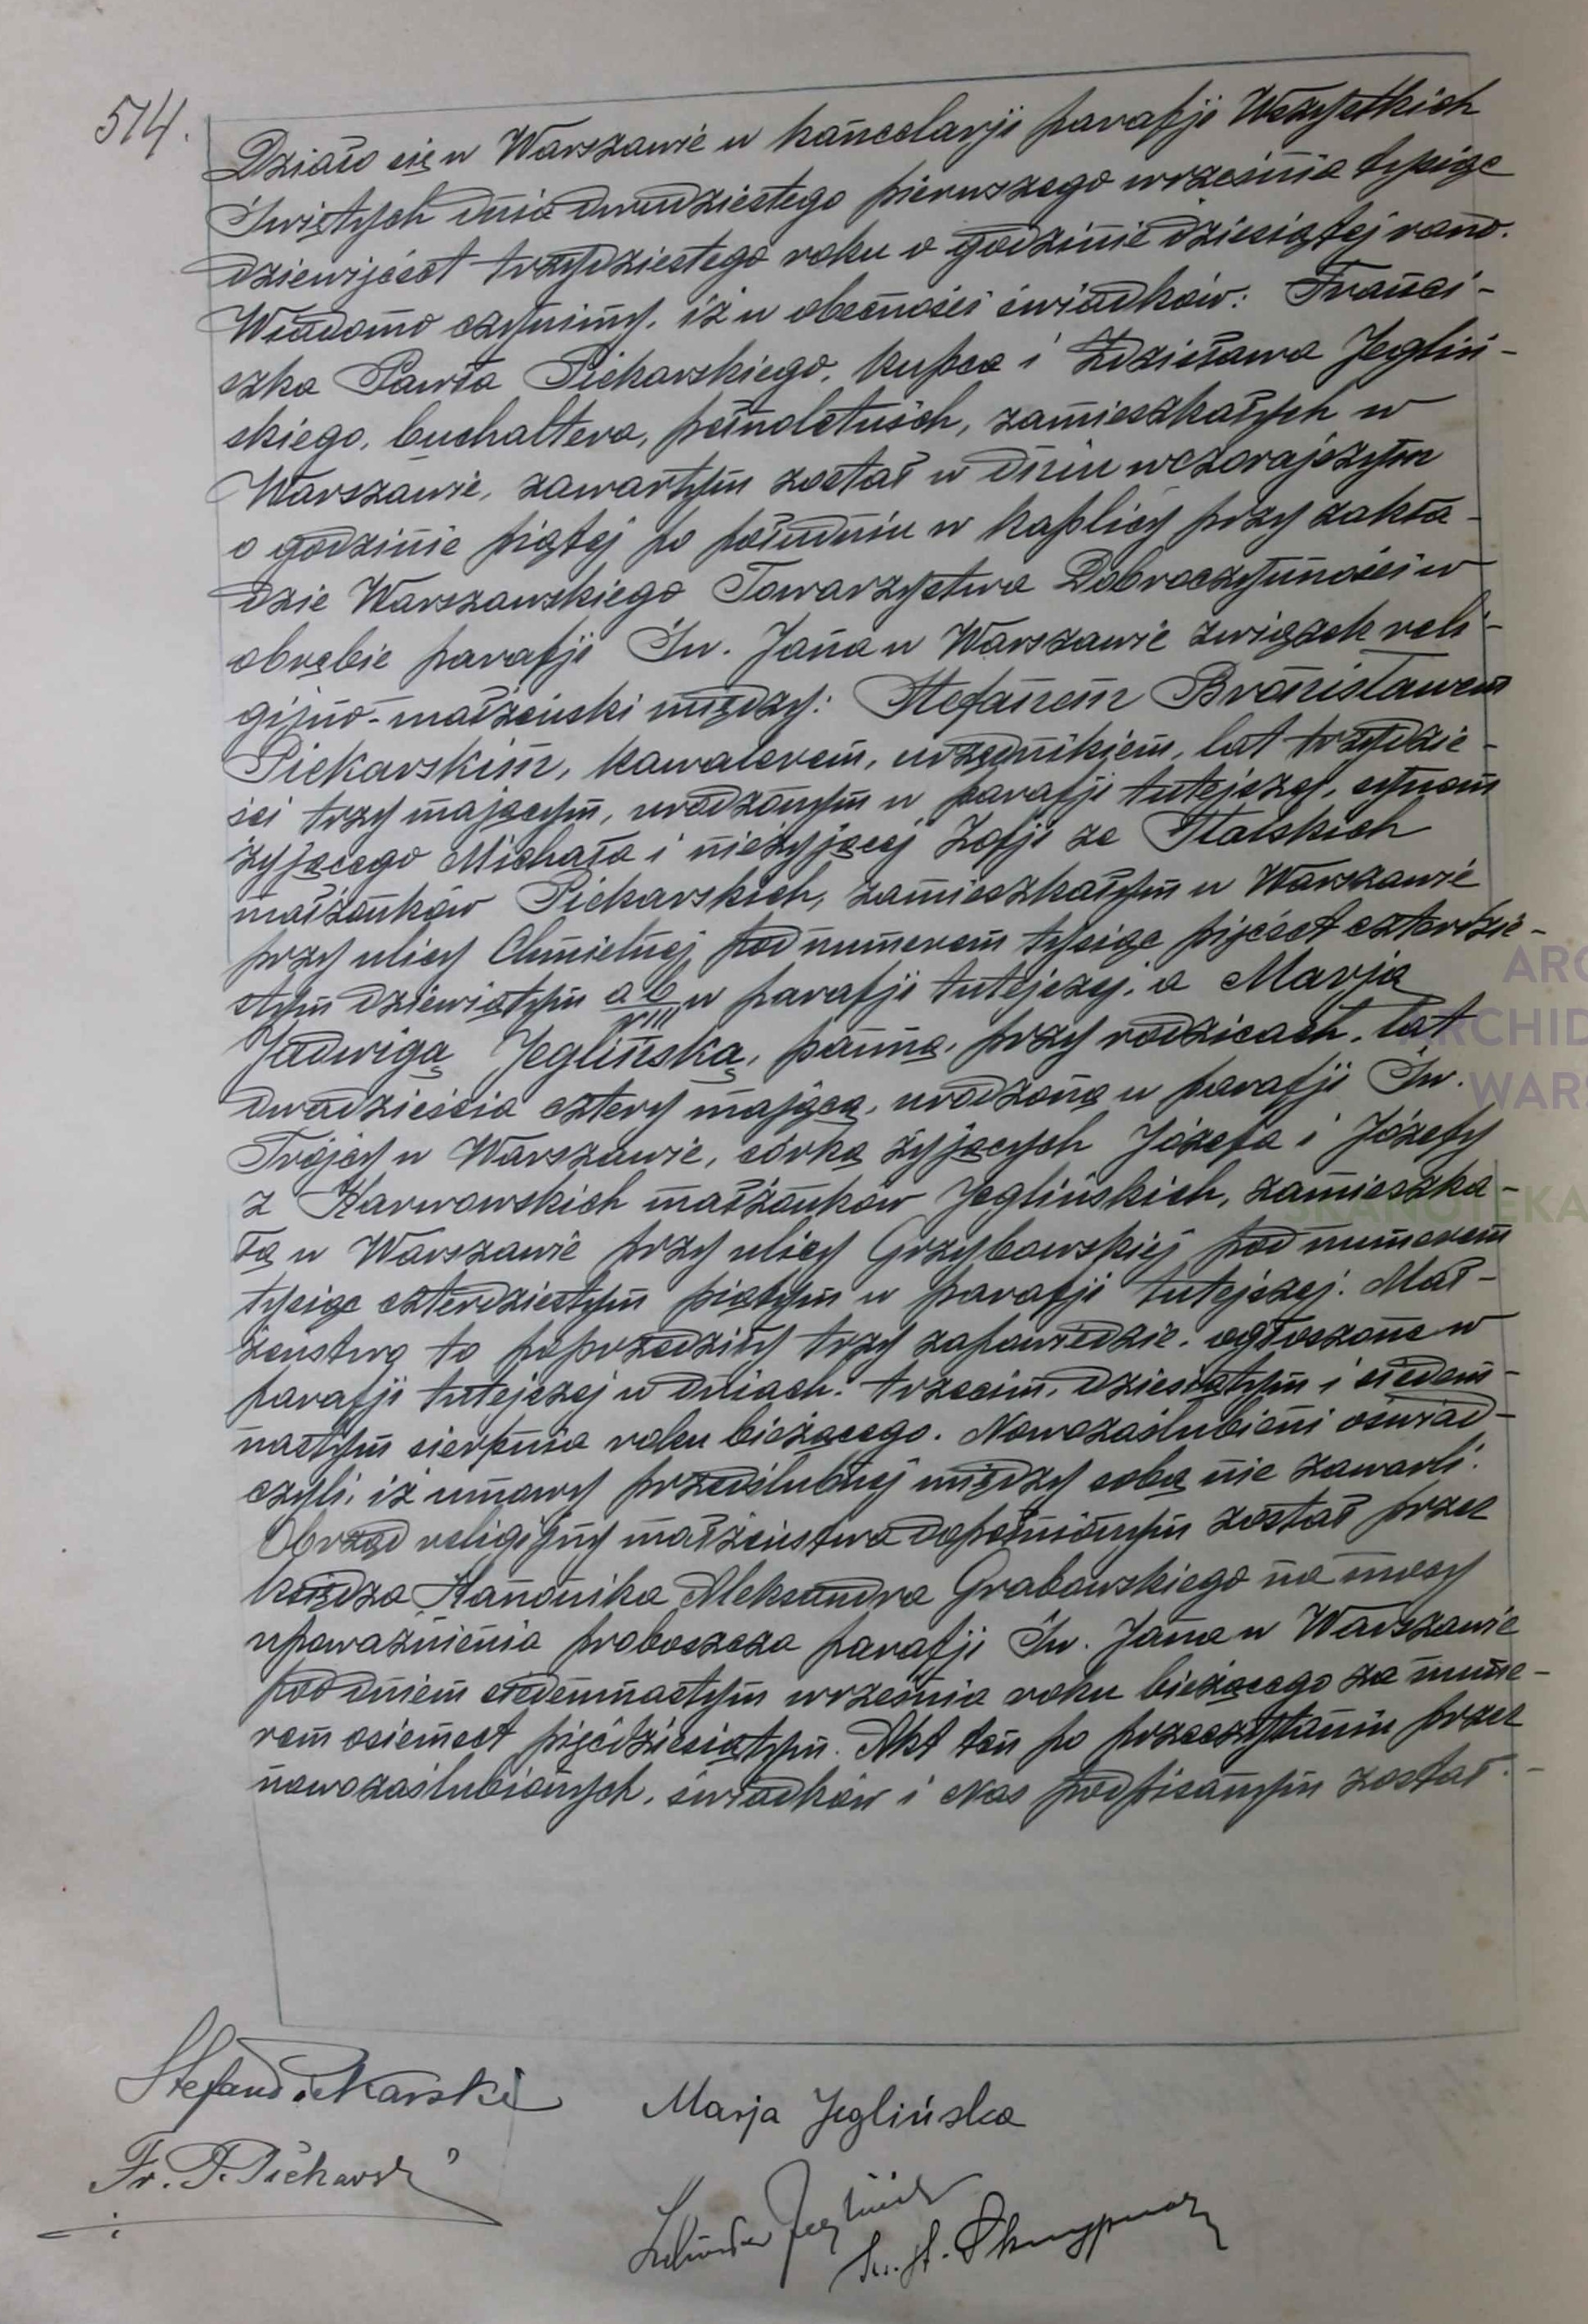 514.
Działo się w Warszawie w kancelarji parafji Wszystkich
Świętych dnia dwudziestego pierwszego września tysiąc
dziewięćset trzydziestego roku o godzinie dziesiątej rano.
Wiadomo czynimy, iż w obecności świadków: Franci-
szka Pawła Piekarskiego, kupca i Zdzisława Jegliń-
skiego, buchaltera, pełnoletnich, zamieszkałych w
Warszawie, zawartym został w dniu wczorajszym
o godzinie piątej po południu w kaplicy przy zakła-
dzie Warszawskiego Towarzystwa Dobroczynności w
obrębie parafji Św. Jana w Warszawie związek reli-
gijno-małżeński między: Stefanem Bronisławem
Piekarskim, kawalerem, urzędnikiem, lat trzydzie-
ści trzy mającym, urodzonym w parafji tutejszej, synem
żyjącego Michała i nieżyjącej Zofji ze Stalskich
małżonków Piekarskich, zamieszkałym w Warszawie
przy ulicy Chmielnej pod numerem tysiąc pięćset czterdzie-
stym dziewiątym ab/VIII w parafji tutejszej, a Marją
Jadwigą Jeglińską, panną, przy rodzicach, lat
dwadzieścia cztery mającą, urodzoną w parafji Św.
Trójcy w Warszawie, córką żyjących Józefa i Józefy
z Karwowskich małżonków Jeglińskich, zamieszka-
łą w Warszawie przy ulicy Grzybowskiej pod numerem
tysiąc czterdziestym piątym w parafji tutejszej. Mał-
żeństwo to poprzedziły trzy zapowiedzie, ogłoszone w
parafji tutejszej w dniach: trzecim, dziesiątym i siedem-
nastym sierpnia roku bieżącego. Nowozaślubieni oświad-
czyli, iż umowy przedślubnej między sobą nie zawarli.
Obrząd religijny małżeństwa dopełnionym został przez
księdza Kanonika Aleksandra Grabowskiego na mocy
upoważnienia proboszcza parafji Św. Jana w Warszawie
pod dniem siedemnastym września roku bieżącego za nume-
rem osiemset pięćdziesiątym. Akt ten po przeczytaniu przez
nowozaślubionych, świadków i Nas podpisanym został.-
Stefan Piekarski Marja Jeglińska
Fr. P. Piekarski